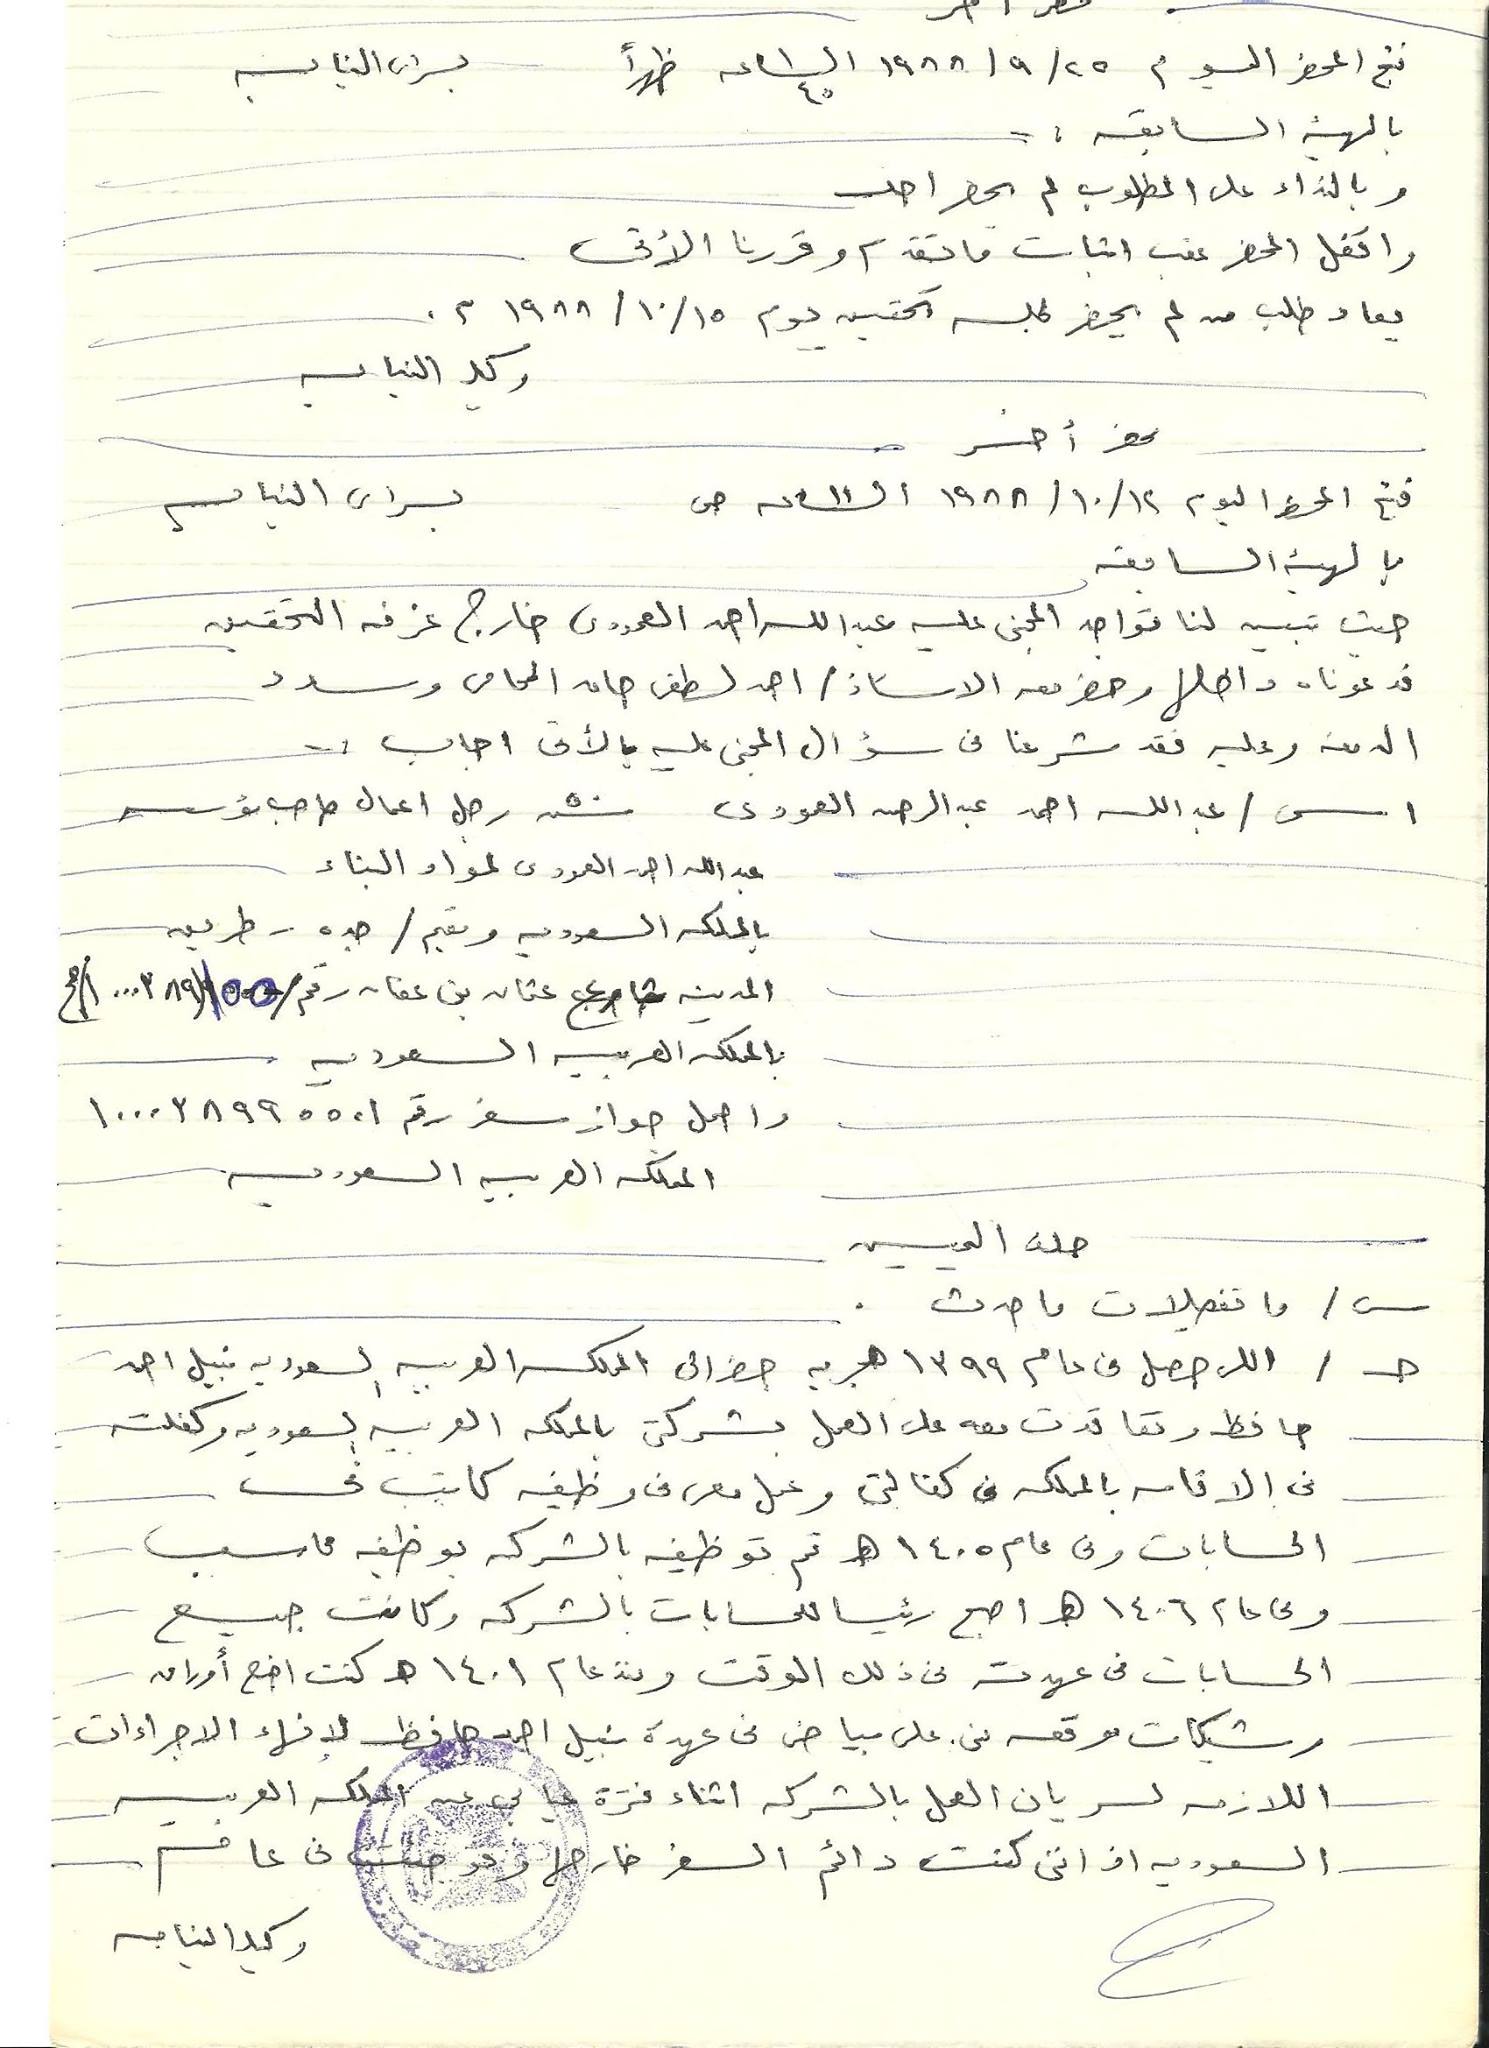 محضر آخر
فتح المحضر اليوم ٢٥/٩/١٩٨٨ الساعة ١ ظهراً بسراى النيابه
٤٥
بالهيئة السابقه :-
وبالنداء على المطلوب لم يحضر احد
واقفل المحضر عقب اثبات ما تقدم وقررنا الأتى
يعاد طلب من لم يحضر لجلسه تحقيق يوم ١٥/١٠/١٩٨٨ م .
وكيل النيابه
محضر أخر
فتح المحضر اليوم ١٢/١٠/١٩٨٨ الساعه ١١ ص بسراى النيابه
بالهيئة السابقه
حيث تبين لنا تواجد المجنى عليه عبد الله احمد العمودى خارج غرفه التحقيق
فدعوناه داخلها وحضر معه الاستاذ/ احمد لطفى المحامى وسدد
الدمغه وعليه فقد شرعنا فى سؤال المجنى عليه بالأتى اجاب :-
اسمى / عبد الله احمد عبد الرحمن العمودى رجل اعمال صاحب مؤسسه
عبد الله احمد العمودى لمواد البناء
بالمملكه السعوديه ومقيم / جده - طريق
المدينه شارع عثمان بن عفان رقم
بالمملكه العربيه السعوديه
واحمل جواز سفر رقم ١٠٠٠٣٨٩٩٥٥٠١
المملكه العربيه السعوديه
حلف اليمين
س / ما تفصيلات ما حدث .
ج / اللى حصل فى عام ١٣٩٩ هجريه حضر الى المملكه العربيه السعوديه نبيل احمد
حافظ وتعاقدت معه على العمل بشركتى بالمملكه العربيه السعوديه وكفلته
فى الاقامه بالمملكه فى كفالتى وعمل معى فى وظيفه كاتب
الحسابات وفى عام ١٤٠٥ هـ تم توظيفه بالشركه بوظيفه محاسب
وفى عام ١٤٠٦ هـ اصبح رئيسا للحسابات بالشركه وكانت جميع
الحسابات فى عهدته فى ذلك الوقت ومنذ عام ١٤٠١ هـ كنت اضع أوراق
وشيكات موقعه منى على بياض فى عهدة نبيل احمد حافظ لإنهاء الاجراءات
اللازمه لسريان العمل بالشركه اثناء فترة غيابى عن المملكه العربيه
السعوديه اذ اننى كنت دائم السفر خارجها فى عام
وكيل النيابه